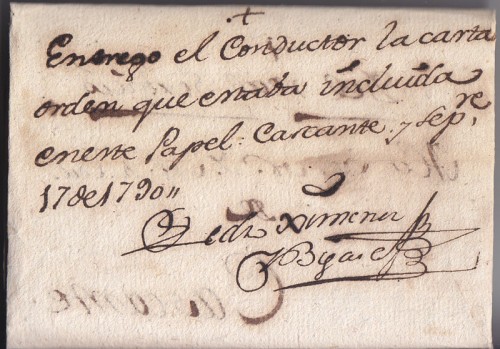 Entrego el Conductor la carta
orden que estaba incluida
en este Papel. Cascante y Sepre.
17 de 1790
Pedro Ximenez